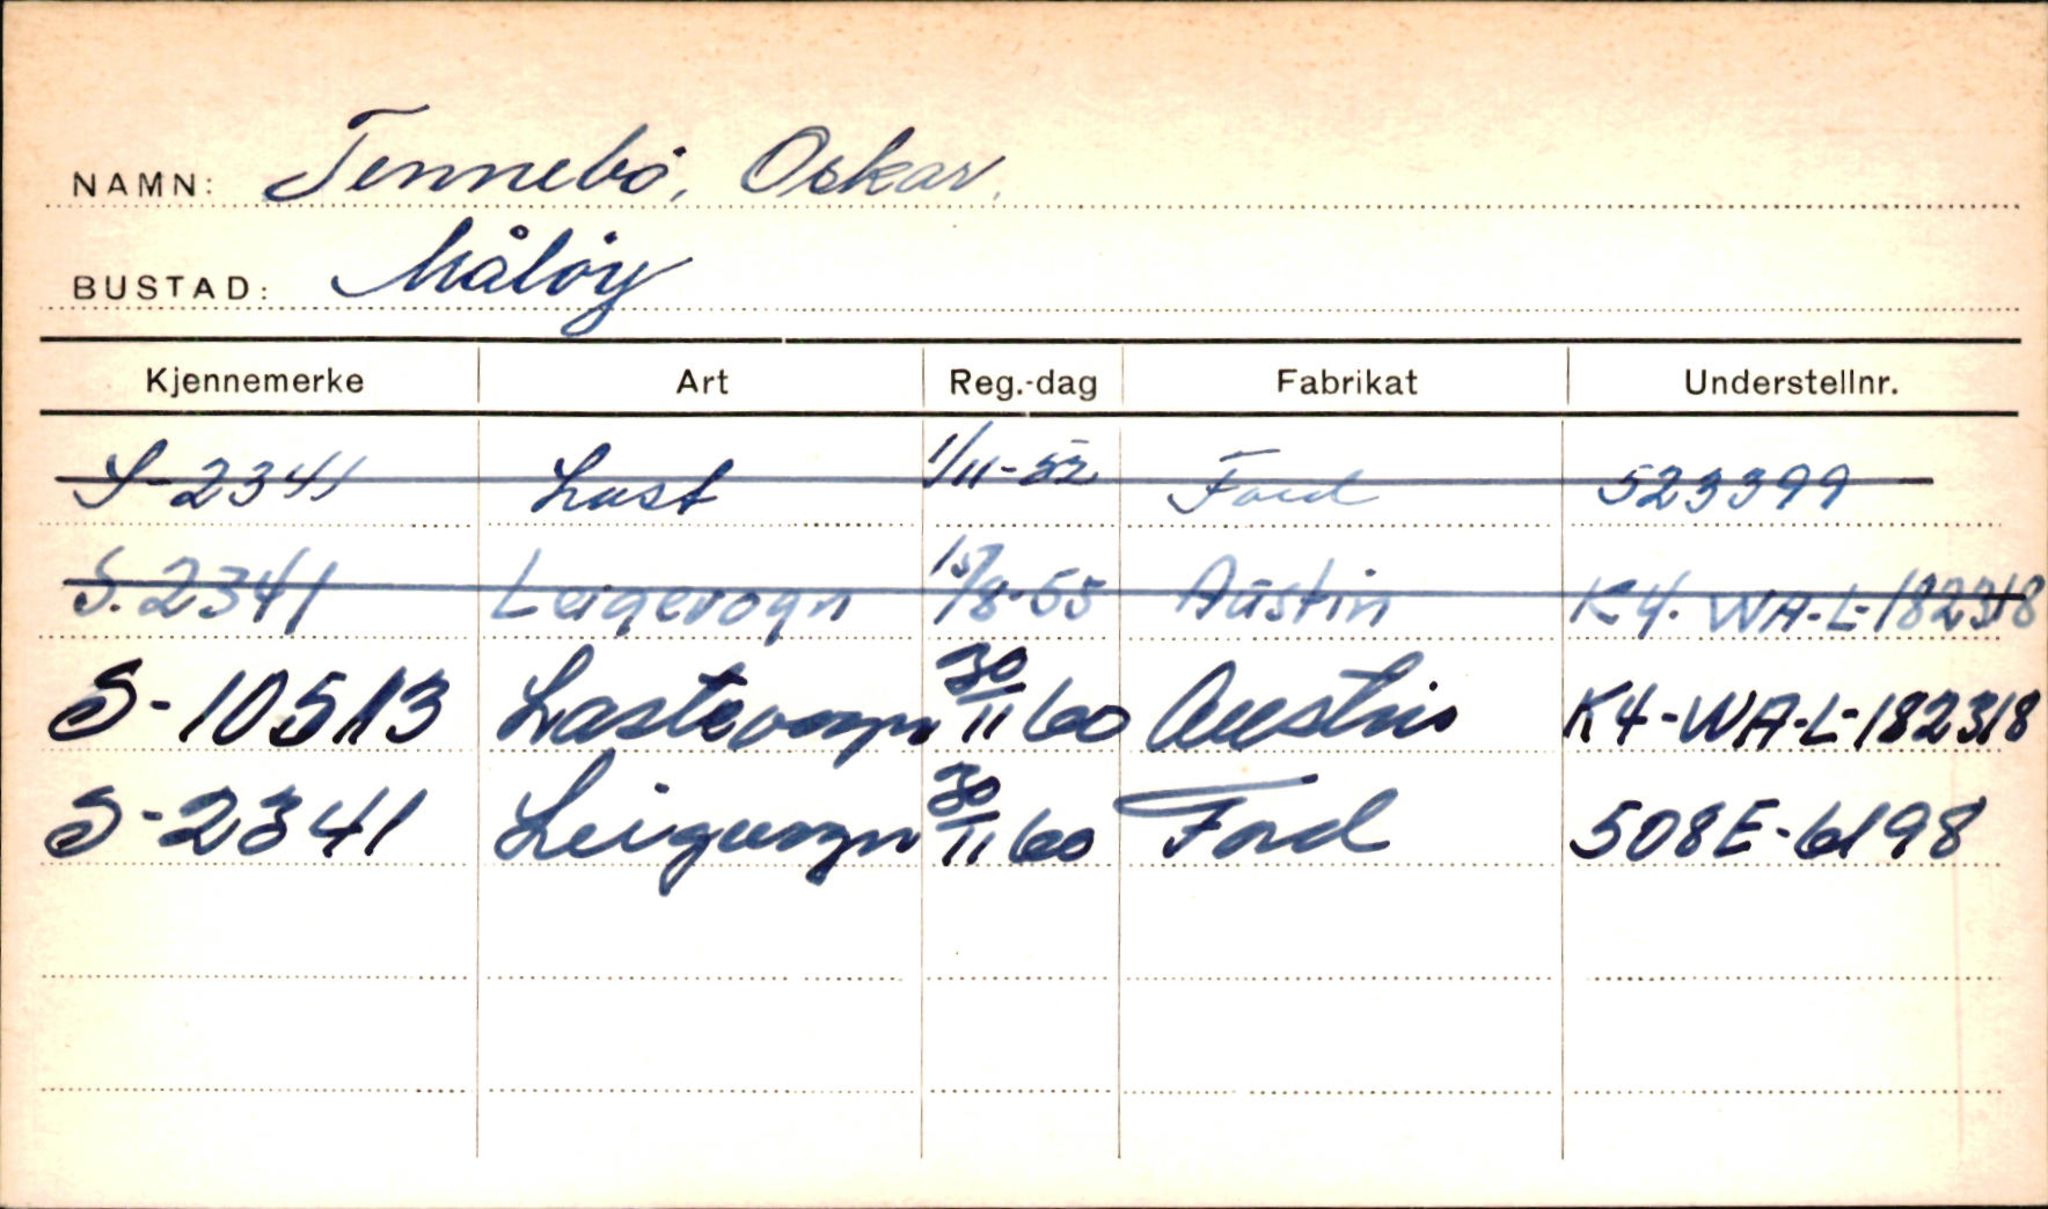 NAMN: Tennebö, Oskar.
BUSTAD: Målöy
Kjennemerke Art Reg.-dag Fabrikat Understellnr.
S-2341 Last 1/11-52 Ford 523399
S.2341 Leigevogn 15/8-55 Austin K4.WA-L-182318
S-10513 Lastevogn 30/11 60 Austin K4-WA-L-182318
S-2341 Leigevogn 30/11 60 Ford 508E-6198